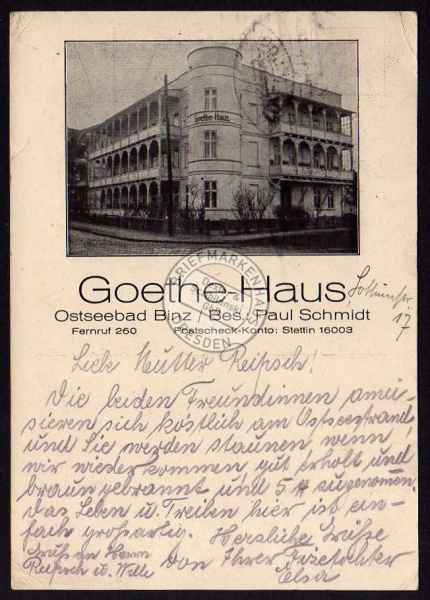 Goethe-Haus
Goethe-Haus
Ostseebad Binz / Bes. Paul Schmidt
Fernruf 260 Postscheck-Konto: Stettin 16003
17
BRIEFMARKENHAUS
DRESDEN
Liebe Mutter Reipsch!
Die beiden Freundinnen amü-
sieren sich köstlich am Ostseestrand
und Sie werden staunen wenn
wir wiederkommen gut erholt und
braun gebrannt und 5 ℔ zugenommen.
Das Leben u. Treiben hier ist ein-
fach großartig. Herzliche Grüße
von Ihrer Vizetochter
Elsa
Gruß an Herrn
Reipsch u. Wille